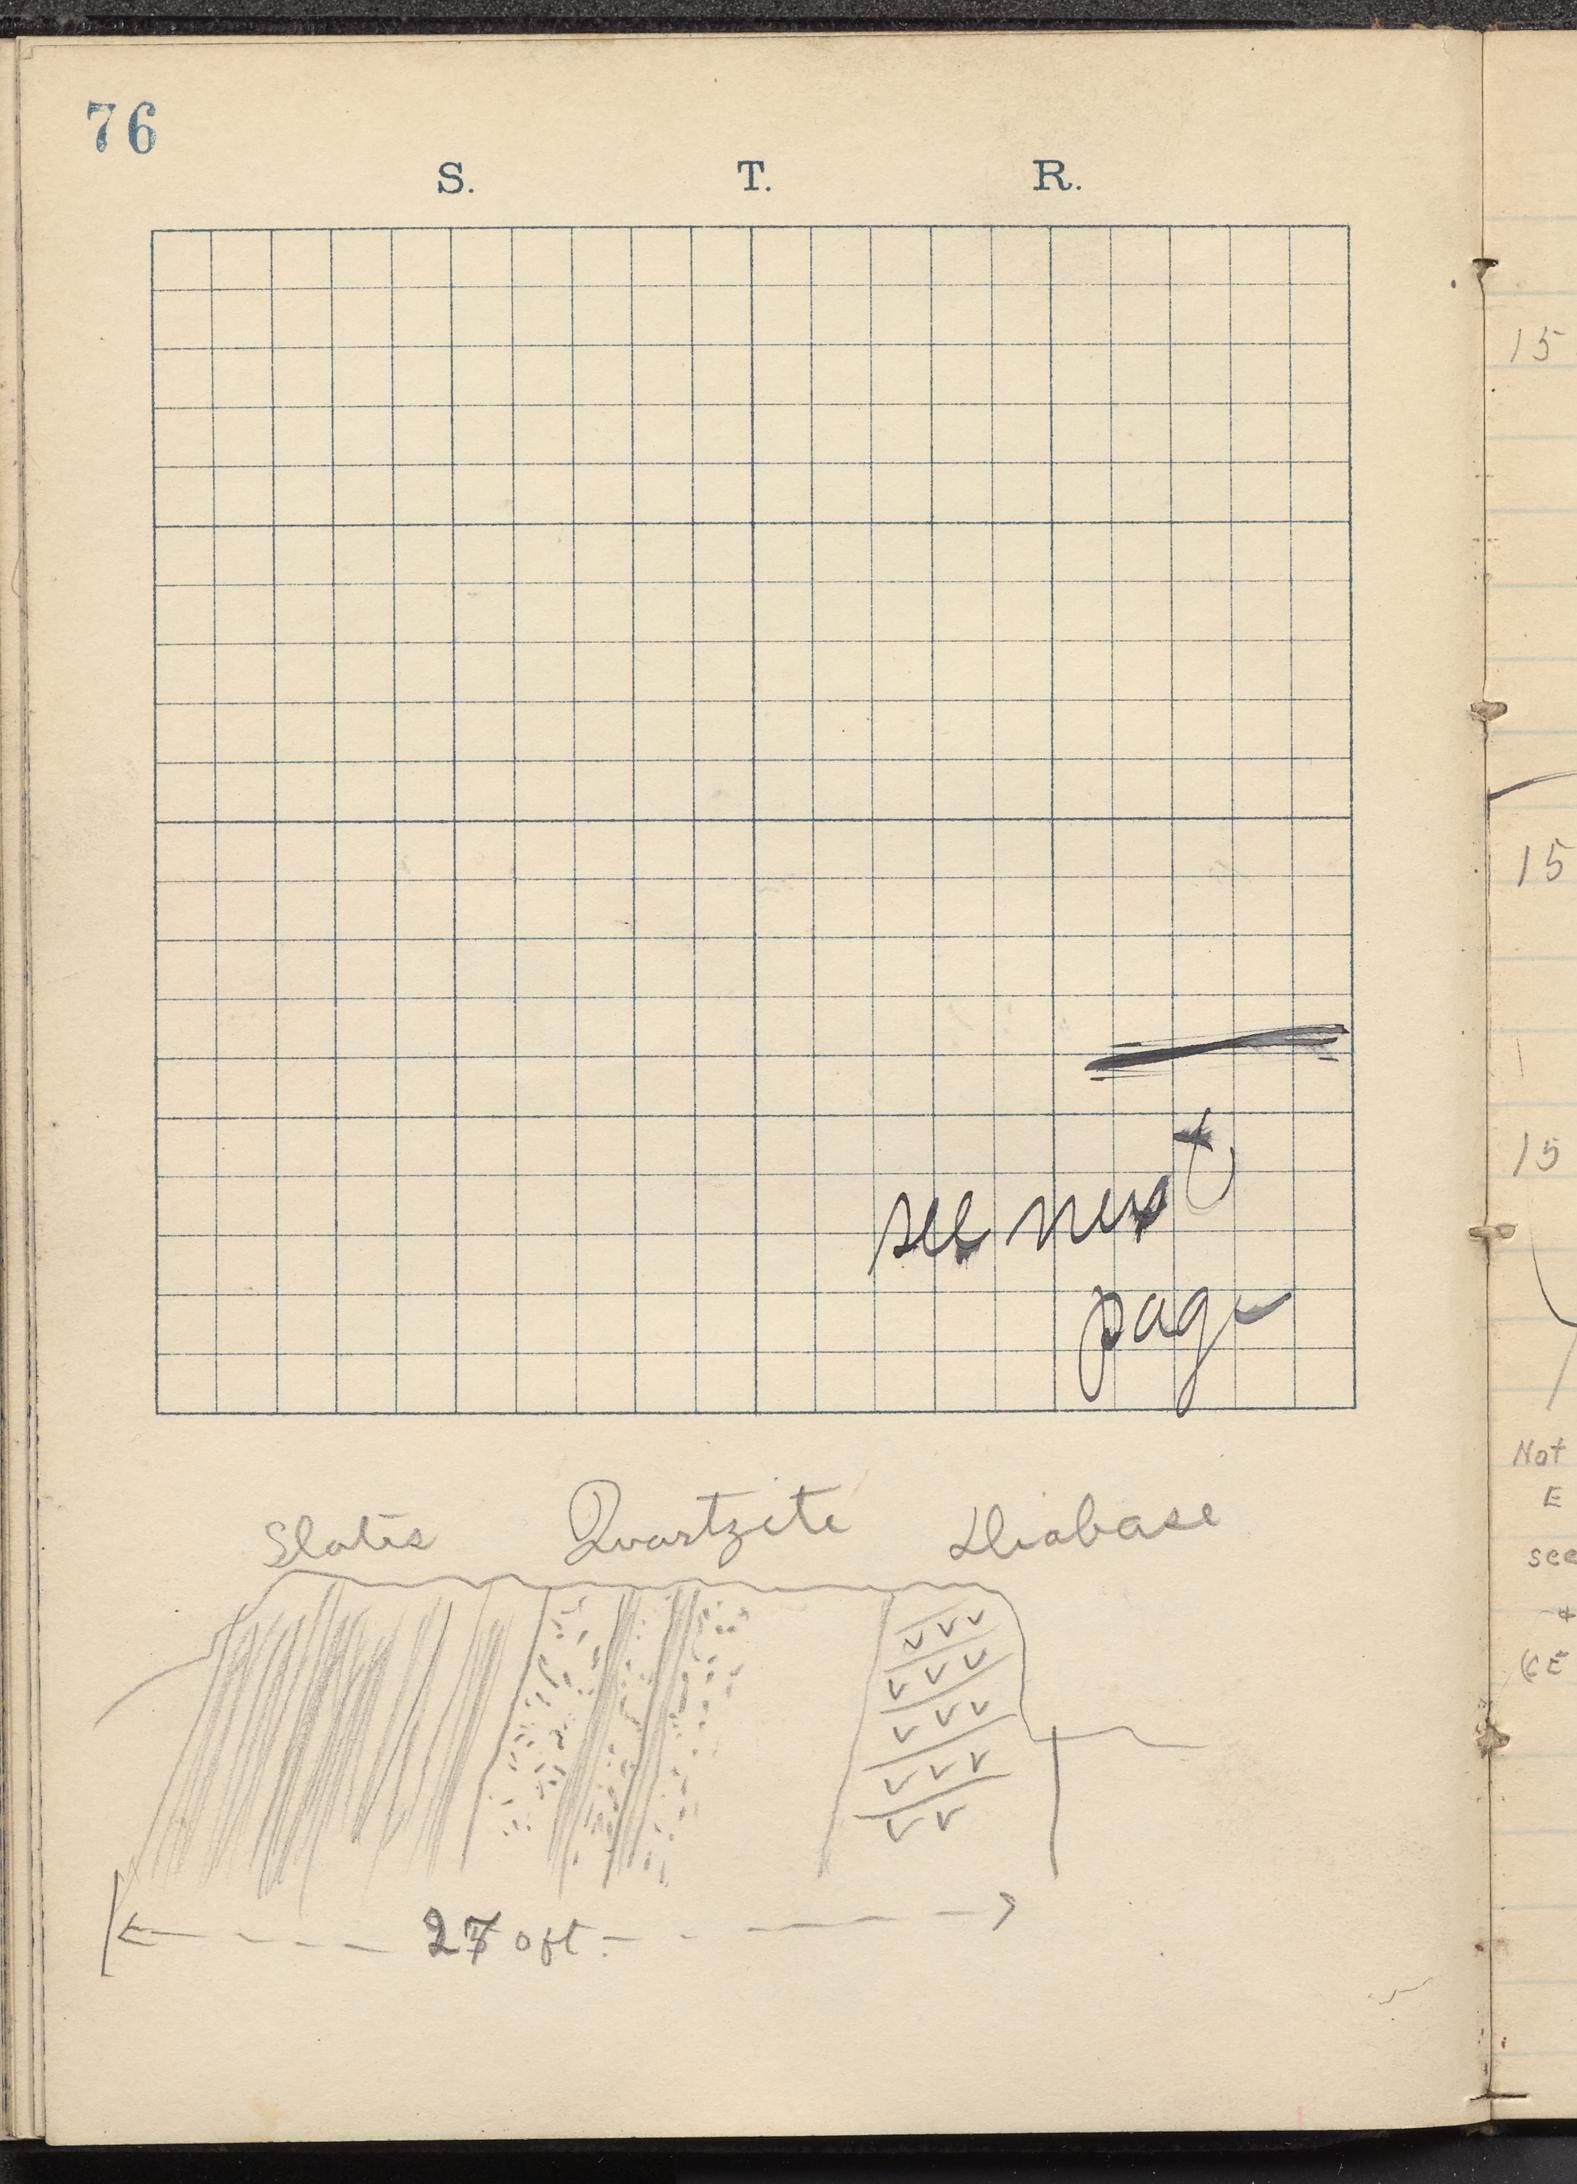 76
S. T. R.
see next
page
Slates Quartzite Diabase
270 ft.
15
15
15
Not
E
see
+
(CE